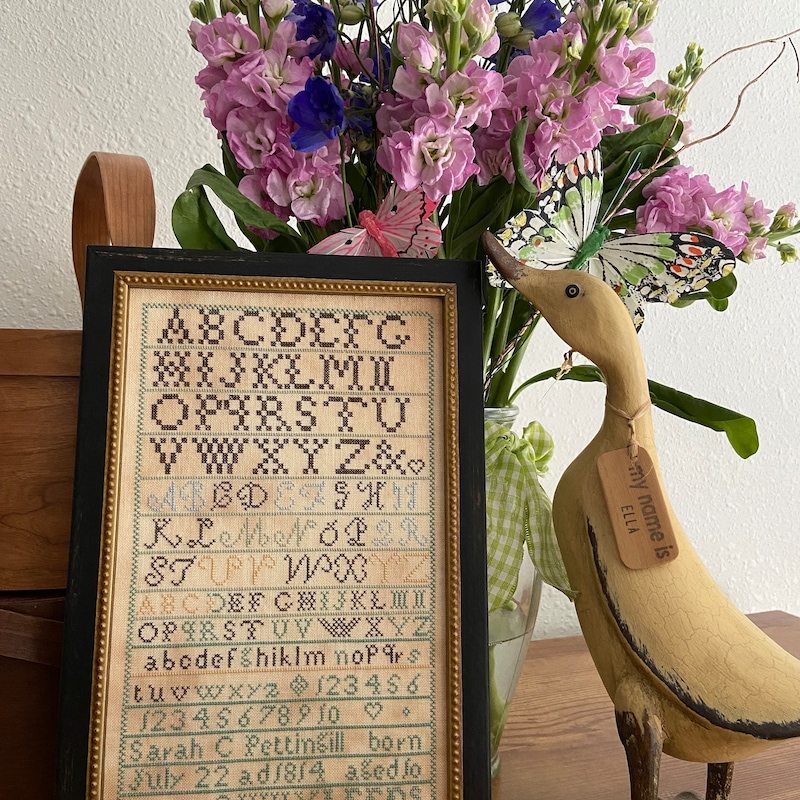 ABCDEFG
HIJKLMN
OPQRSTU
VWXYZ&
ABCDEFGHI
KLMNOPQR
STUVWXYZ
ABCDEFGHIJKLMN
OPQRSTUVWXYZ
abcdefghiklmnopqrs
tuvwxyz 123456
12345678910
Sarah C Pettingill born
July 22 ad1814 aged10
my name is
ELLA